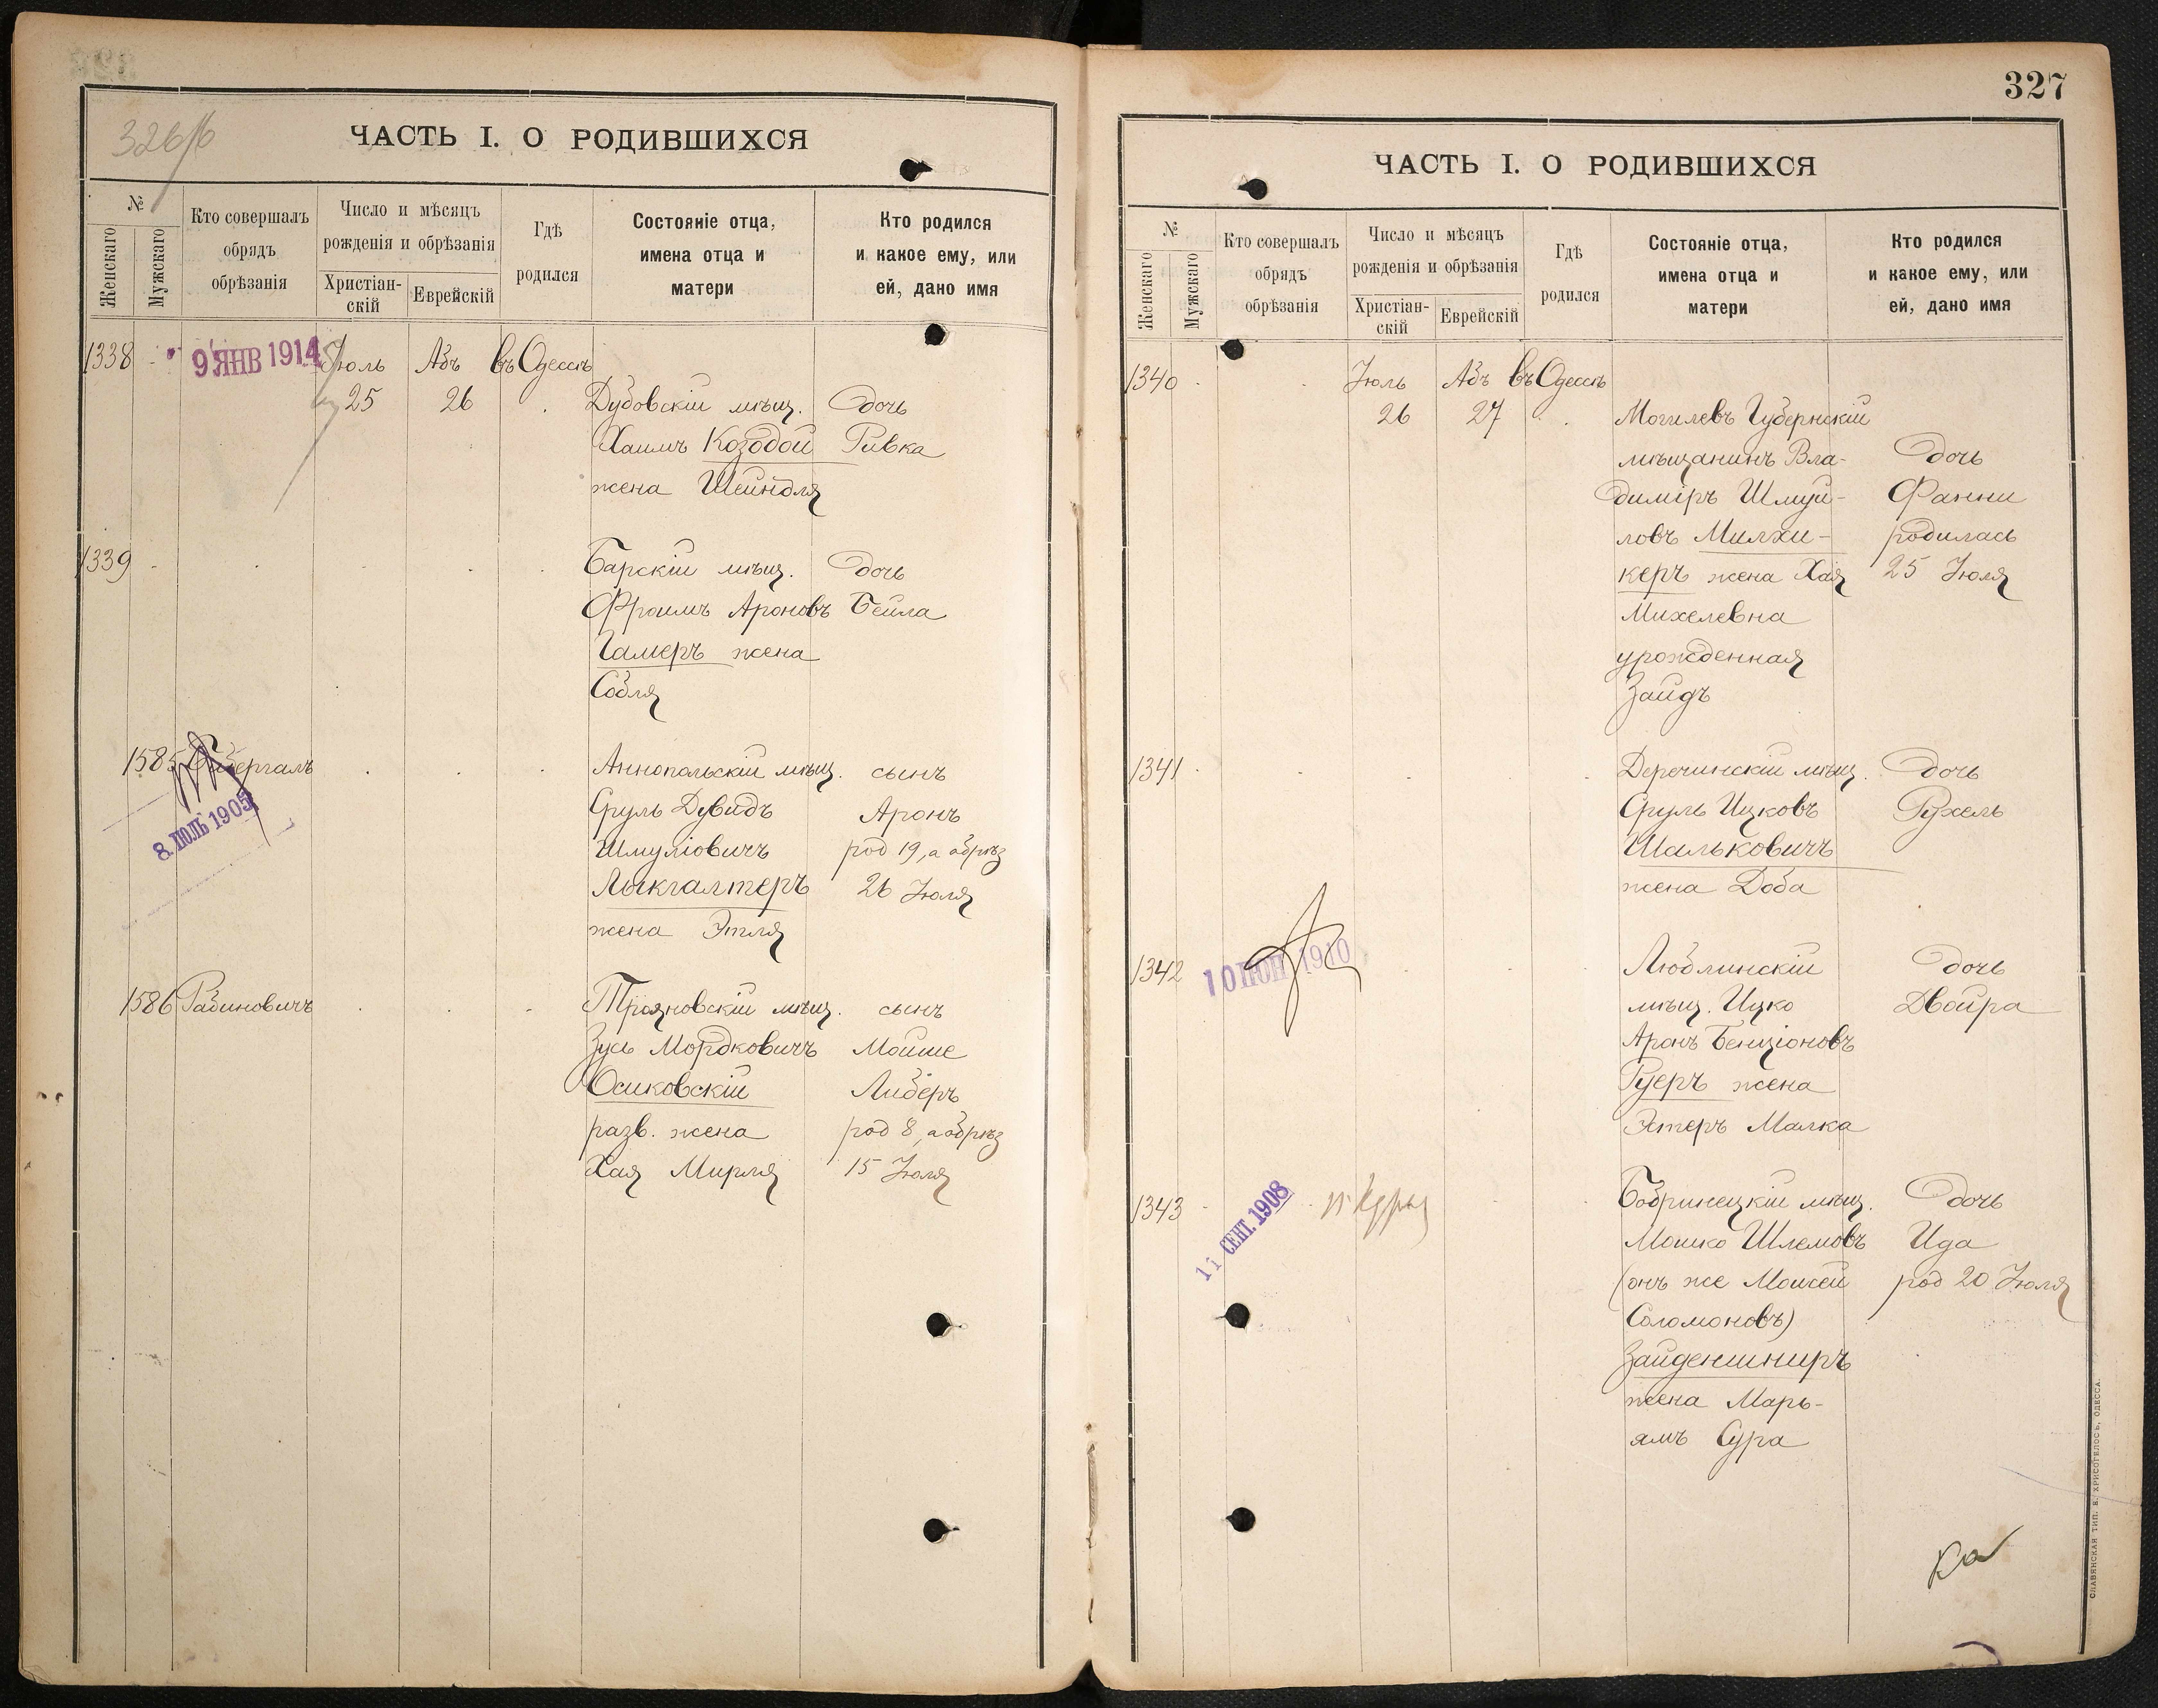 326/б
ЧАСТЬ I. О РОДИВШИХСЯ
№
Женскаго
Мужскаго
Кто совершалъ
обрядъ
обрѣзанія
Число и мѣсяцъ
рожденія и обрѣзанія
Христіан-
скій
Еврейскій
Гдѣ
родился
Состояніе отца,
имена отца и
матери
Кто родился
и какое ему, или
ей, дано имя
1338
9 ЯНВ 1914
Іюль Абъ въ Одессѣ
25 26
Дубовскій мѣщ. дочь
Хаимъ Козодой Ривка
жена Шейндля
1339
Барскій мѣщ. дочь
Фроимъ Ароновъ Бейла
Гамеръ жена
Собля
1585
8. ІЮЛЬ 1905
Аннопольскій мѣщ. сынъ
Сруль Дувидъ Аронъ
Шмуліовичъ род 19, а обрѣз
Лыкгалтеръ 26 Іюля
жена Этля
1586 Рабиновичъ
Трояновскій мѣщ. сынъ
Зусь Мордковичъ Мойше
Осиковскій Либеръ
разв. жена род 8, а обрѣз
Хая Мирля 15 Іюля
327
ЧАСТЬ I. О РОДИВШИХСЯ
№
Женскаго
Мужскаго
Кто совершалъ
обрядъ
обрѣзанія
Число и мѣсяцъ
рожденія и обрѣзанія
Христіан-
скій
Еврейскій
Гдѣ
родился
Состояніе отца,
имена отца и
матери
Кто родился
и какое ему, или
ей, дано имя
1340 Іюль Абъ въ Одессѣ
26 27
Могилевъ Губернскій
мѣщанинъ Вла- дочь
диміръ Шмуй- Фанни
ловъ Милхи- родилась
керъ жена Хая 25 Іюля
Михелевна
урожденная
Зайдъ
1341
Деречинскій мѣщ. дочь
Сруль Ицковъ Рухель
Шальковичъ
жена Доба
1342
10 ІЮН 1910
Люблинскій дочь
мѣщ. Ицко Двойра
Аронъ Бенціоновъ
Гуеръ жена
Эстеръ Малка
1343
11 СЕНТ. 1908
Бобринецкій мѣщ. дочь
Мошко Шлемовъ Ида
(онъ же Моисей род 20 Іюля
Соломоновъ)
Зайденшниръ
жена Марь-
ямъ Сура
СЛАВЯНСКАЯ ТИП. Е. ХРИСОГЕЛОСЪ, ОДЕССА.